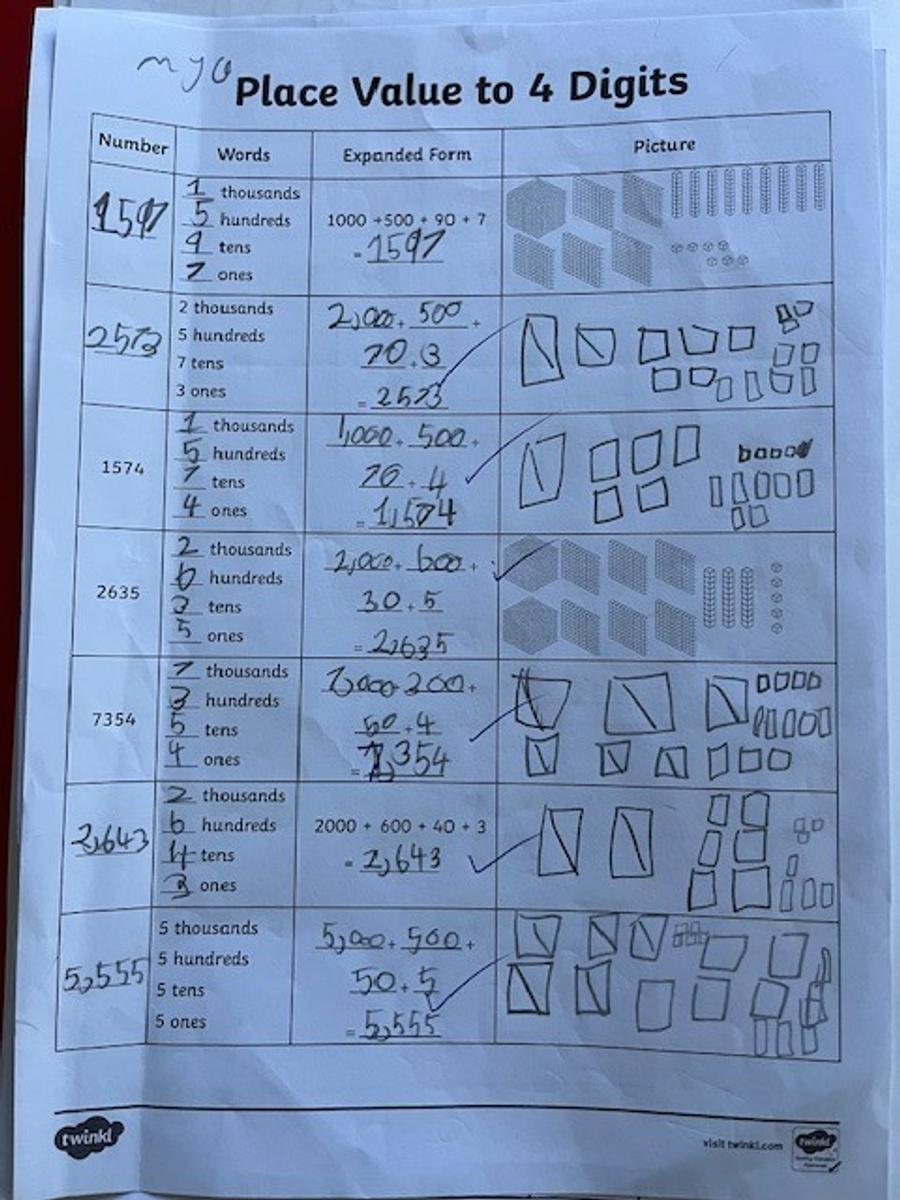 myo
Place Value to 4 Digits
Number Words Expanded Form Picture
1597
1 thousands
5 hundreds
9 tens
7 ones
1000 + 500 + 90 + 7
= 1597
2573
2 thousands
5 hundreds
7 tens
3 ones
2,000 + 500 +
70 + 3
= 2573
1574
1 thousands
5 hundreds
7 tens
4 ones
1,000 + 500 +
70 + 4
= 1,574
2635
2 thousands
6 hundreds
3 tens
5 ones
2,000 + 600 +
30 + 5
= 2,635
7354
7 thousands
3 hundreds
5 tens
4 ones
7,000 + 300 +
50 + 4
= 7,354
2,643
2 thousands
6 hundreds
4 tens
3 ones
2000 + 600 + 40 + 3
= 2,643
5,555
5 thousands
5 hundreds
5 tens
5 ones
5,000 + 500 +
50 + 5
= 5,555
twinkl
visit twinkl.com
twinkl